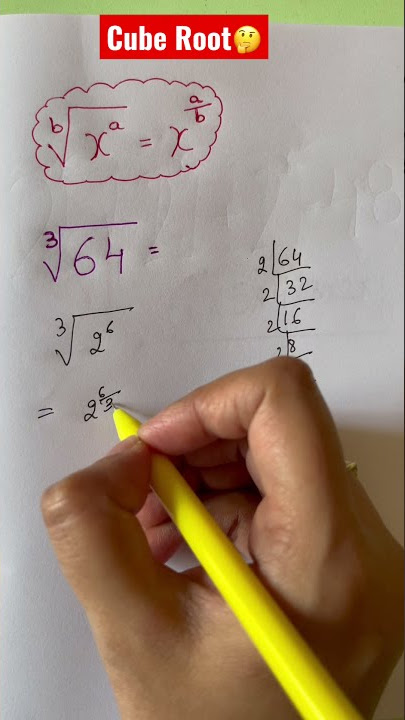 Cube Root🤔
ᵇ√xᵃ = x^(a/b)
³√64 =
³√2⁶
= 2^(6/3)
2|64
2|32
2|16
2|8